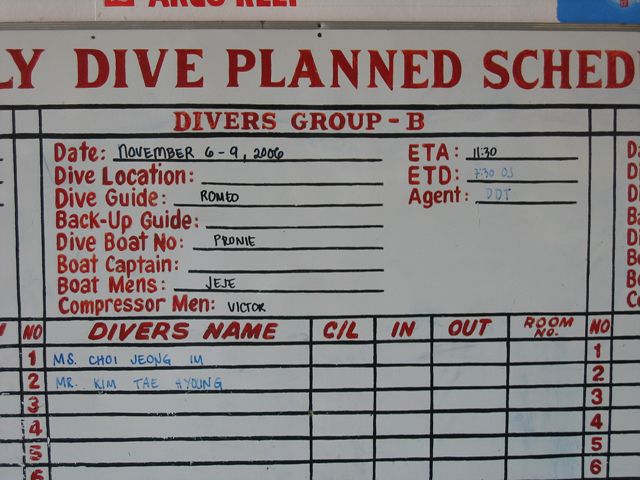 LY DIVE PLANNED SCHED
DIVERS GROUP - B
Date: NOVEMBER 6-9, 2006
ETA: 11:30
Dive Location:
ETD: 7:30 OJ
Dive Guide: ROMEO
Agent: DDT
Back-Up Guide:
Dive Boat No: PRONIE
Boat Captain:
Boat Mens: JEJE
Compressor Men: VICTOR
NO DIVERS NAME C/L IN OUT ROOM NO. NO
1 MS. CHOI JEONG IM 1
2 MR. KIM TAE HYOUNG 2
3 3
4 4
5 5
6 6